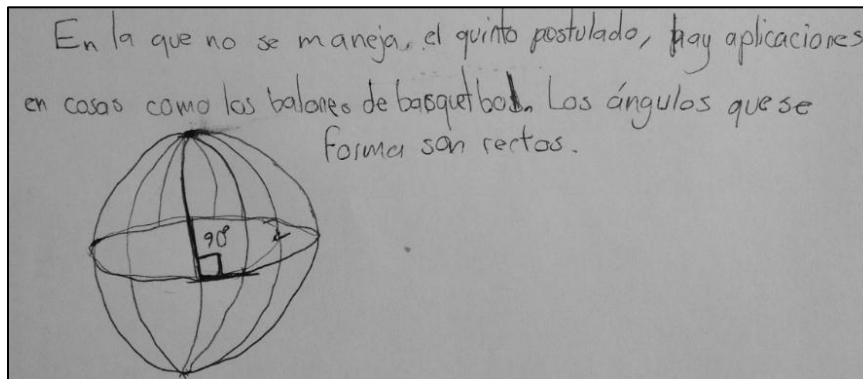 En la que no se maneja, el quinto postulado, hay aplicaciones
en cosas como los balones de basquetbol. Los ángulos que se
forma son rectos.
90°